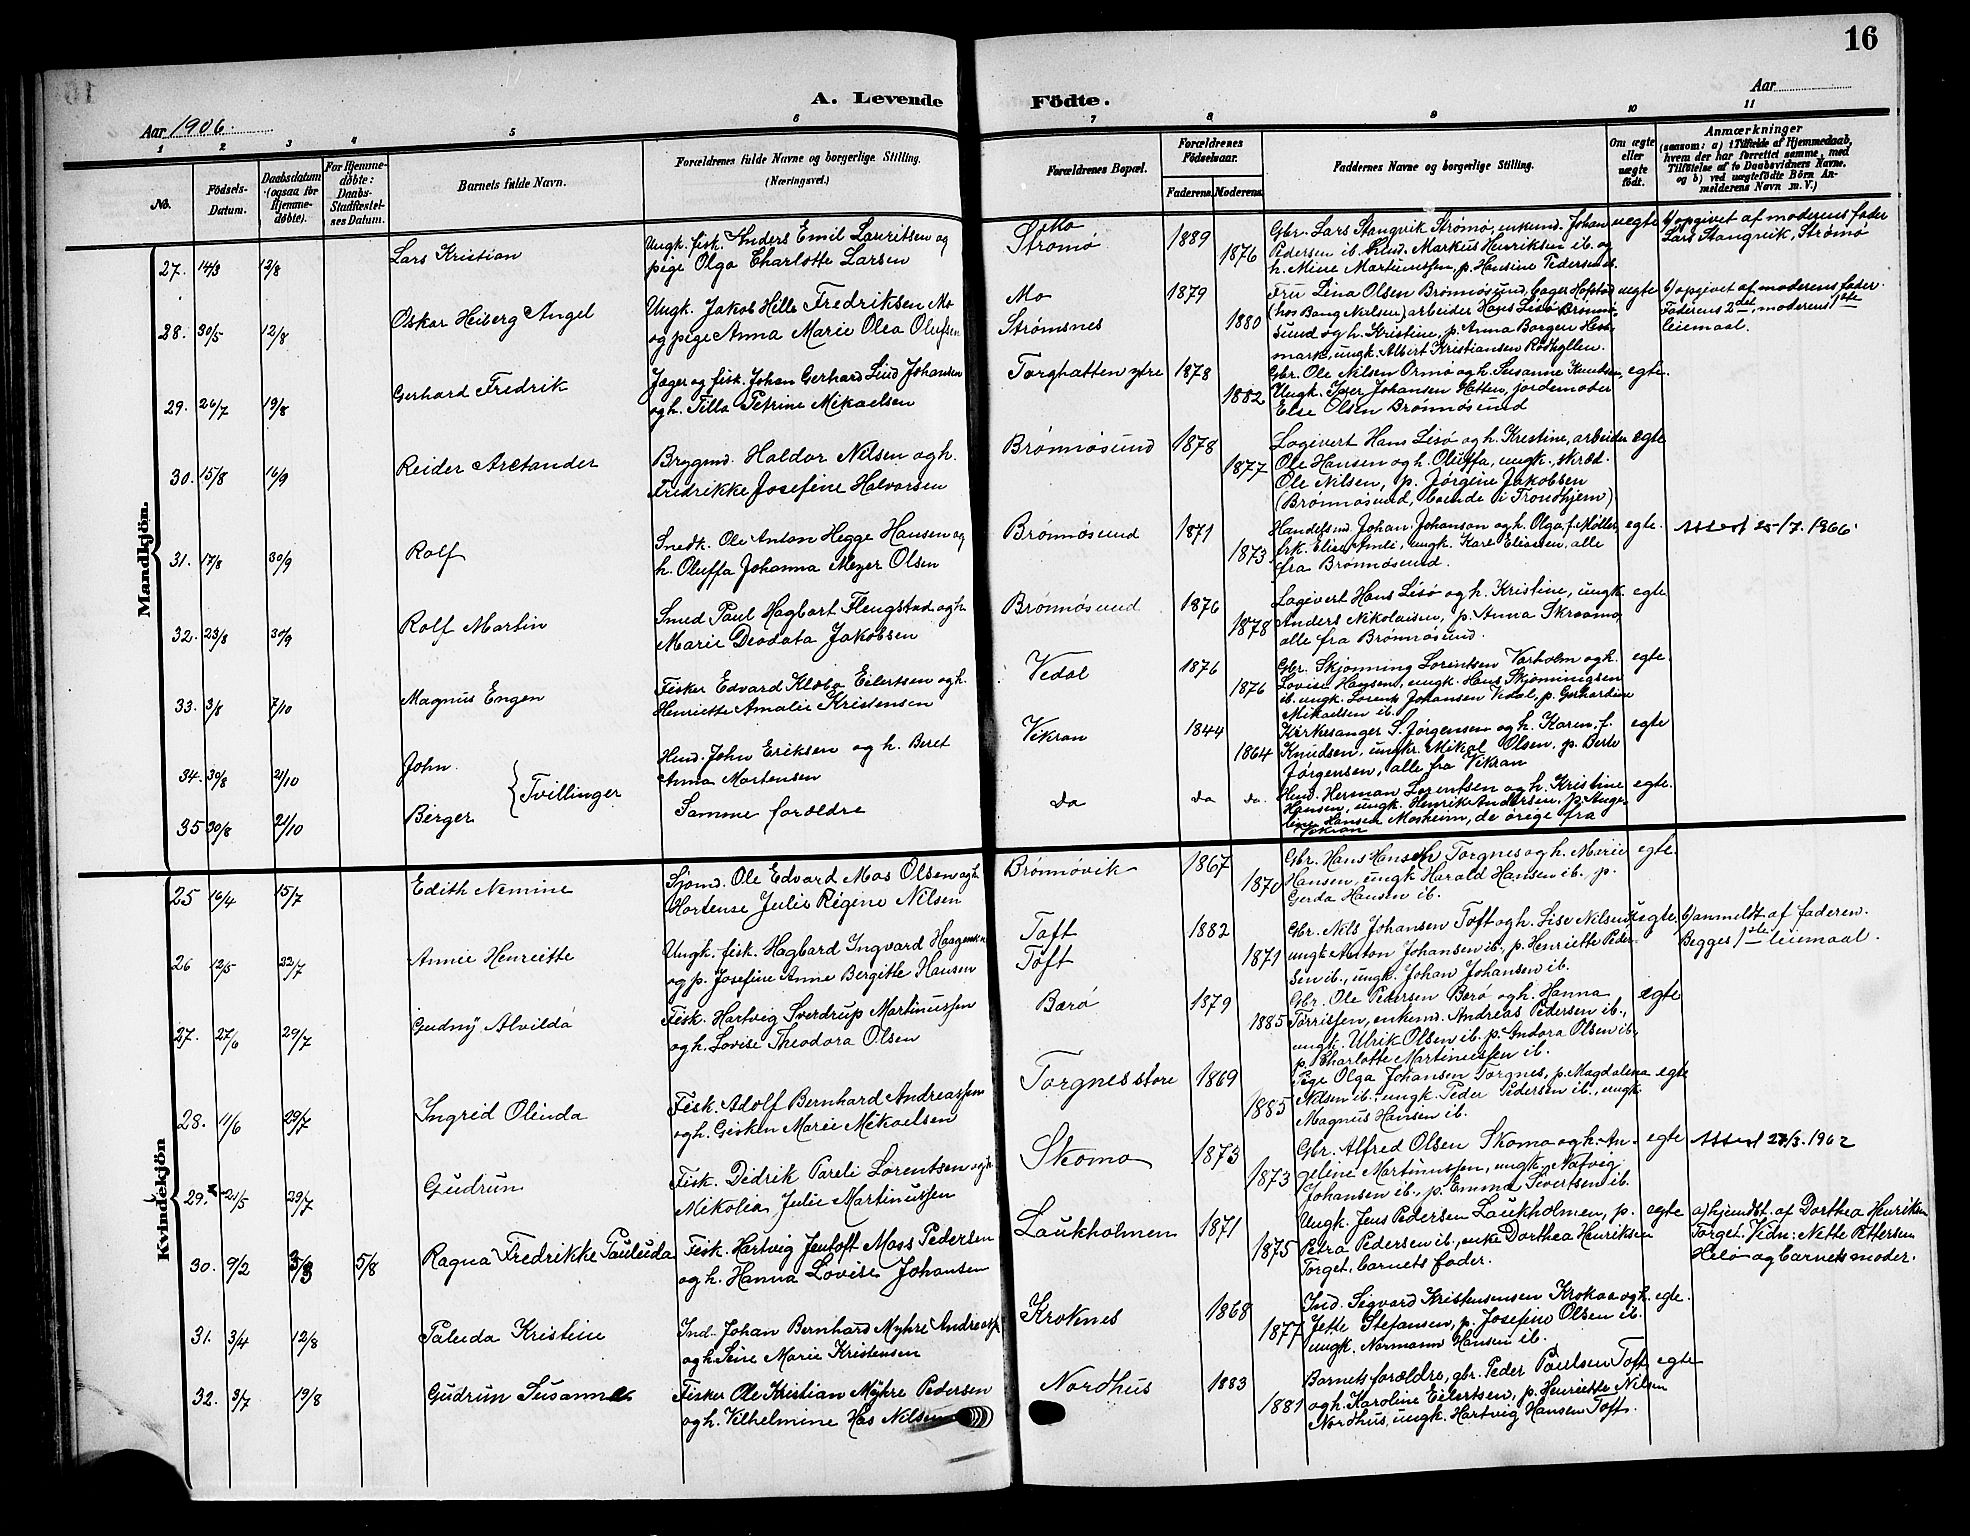 16
A. Levende Födte.
Aar 1906.
Aar
1 2 3 4 5 6 7 8 9 10 11
No.
Födsels-
Datum.
Daabsdatum
(ogsaa for
Hjemme-
døbte).
For Hjemme-
døbte:
Daabs-
Stadfæstel-
ses Datum.
Barnets fulde Navn.
Forældrenes fulde Navne og borgerlige Stilling.
(Næringsvei.)
Forældrenes Bopæl.
Forældrenes
Fødselsaar.
Faderens. Moderens.
Faddernes Navne og borgerlige Stilling.
Om ægte
eller
uægte
født.
Anmærkninger
(saasom: a) i Tilfælde af Hjemmedaab,
hvem der har forrettet samme, med
Tilføielse af to Daabsvidners Navne,
og b) ved uægtefødte Børn An-
melderens Navn m. V.)
Mandkjön.
27. 14/3 12/8 Lars Kristian
Ungk. fisk. Anders Emil Lauritsen og
pige Olga Charlotte Larsen
Mo
Strømø
1889
1876
Gbr. Lars Stangvik Strømø, enkemd. Johan
Pedersen ib. Hmd. Markus Henriksen ib. og
h. Mine Martinussen, p. Hansine Pedersen ib.
uegte
b) opgivet af moderens fader
Lars Stangvik, Strømø
28. 30/5 12/8 Oskar Heiberg Angel
Ungk. Jakob Hille Fredriksen Mo
og pige Anna Marie Olea Olufsen
Mo
Strømsnes
1879
1880
Fru Lina Olsen Brønnøsund, Hofstad
(hos Bang Nielsen) arbeider Hans Lisø Brønnø-
sund og h. Kristine, p. Anna Borgen Hest-
mark, ungk. Albert Kristiansen Rødhyllen.
uegte
b) opgivet af moderens fader.
Faderens 2det, moderens 1ste
leiemaal.
29. 26/7 19/8 Gerhard Fredrik
Jæger og fisk. Johan Gerhard Lind Johansen
og h. Tilla Petrine Mikaelsen
Torghatten ytre
1878
1882
Gbr. Ole Nilsen Ormø og h. Susanne Knudsen,
Ungk. Iver Johansen Hatten, jordemoder
Else Olsen Brønnøsund
egte.
30. 15/8 16/9 Reider Arctander
Brygmd. Haldor Nilsen og h.
Fredrikke Josefine Halvorsen
Brønnøsund
1878
1877
Logivert Hans Lisø og h. Kristine, arbeider
Ole Hansen og h. Oluffa, ungk. skræd.
Ole Nilsen, p. Jørgine Jakobsen
(Brønnøsund, boende i Trondhjem)
egte
31. 17/8 30/9 Rolf
Snedk. Ole Anton Hegge Hansen og
h. Oluffa Johanna Meyer Olsen
Brønnøsund
1871
1873.
Handelsmd. Johan Johanson og h. Olga f. Møller,
frk. Elise Amli, ungk. Karl Eliassen, alle
fra Brønnøsund.
egte.
Attest 25/7. 1966
32. 23/8 30/9 Rolf Martin
Smed Paul Hagbart Flengstad og h
Marie Deodata Jakobsen
Brønnøsund
1876
1878
Logivert Hans Lisø og h. Kristine, ungk.
Anders Nikolaisen, p. Anna Skraamo,
alle fra Brønnøsund.
egte
33. 3/8 7/10 Magnus Engen
Fisker Edvard Klæbo Eilertsen og h.
Henriette Amalie Kristensen
Vedal
1876
1876
Gbr. Skjønning Lorentsen Varholm og h.
Lovise Hansen, ungk. Hans Skjønningsen
ib. ungk. Lorents Johansen Vedal, p. Gerhardine
Mikaelsen ib.
egte.
34. 30/8 21/10 John.
Hmd. John Eriksen og h. Beret
Anna Mortensen
Vikran
1844
1864
Kirkesanger S. Jørgensen og h. Karen, f.
Knudsen, ungkr. Mikal Olsen, p. Berte
Jørgensen, alle fra Vikran
egte
Tvillinger
35 30/8 21/10 Berger
Samme forældre
da
da da.
Hmd. Herman Lorentsen og h. Kristine
Hansen, ungk. Henrik Andersen, p. Ange-
line Hansen Mosheim, de øvrige fra
Vikran
egte.
Kvindekjön
25 16/4 15/7 Edith Nemine
Sjømd. Ole Edvard Mos Olsen og h.
Hortense Julie Regine Nilsen
Brønnøvik
1867
1870
Gbr. Hans Hansen Torgnes og h. Marie
Hansen, ungk Harald Hansen ib. p.
Gerda Hansen ib.
egte.
26 12/5 22/7 Annie Henriette
Ungk. fisk. Hagbard Ingvard Haagensen
og p. Josefine Anne Bergitte Hansen
Toft
Toft
1882
1871
Gbr. Nils Johansen Toft og h. Lise Nilsen,
ungk Anton Johansen ib., p. Henriette Peder-
sen ib., ungk. Johan Johansen ib.
uegte,
b) anmeldt af faderen.
Begges 1ste leiemaal.
27. 27/6 29/7 Gudny Alvilda
Fisk. Hartvig Sverdrup Martinussen
og h. Lovise Theodora Olsen
Bærø
1879
1885
Gbr. Ole Pedersen Bærø og h. Hanna
Torrissen, enkemd. Andreas Pedersen ib.,
ungk. Ulrik Olsen ib. p. Andora Olsen ib.,
p. Charlotte Martinussen ib.
egte
28. 11/6 29/7 Ingrid Olinda
Fisk. Adolf Bernhard Andreassen
og h. Gisken Marie Mikaelsen
Torgnes store
1869
1885
Pige Olga Johansen Torgnes, p. Magdalena
Nilsen ib., ungk. Peder Pedersen ib., ungk
Magnus Hansen ib.
egte
29. 21/5 29/7 Gudrun
Fisk. Didrik Pareli Lorentsen og h.
Mikolia Julie Martinussen
Skomo
1873
1873
Gbr. Alfred Olsen Skomo og h. An-
geline Martinussen, ungk. Nafvig
Johansen ib., p. Emma Sivertsen ib.
egte
Attest 27/3. 1962
30. 9/2 3/8 5/8 Ragna Fredrikke Pauleda
Fisk. Hartvig Jentoft Moss Pedersen
og h. Hanna Lovise Johansen
Laukholmen
1871
1875
Ungk. Jens Pedersen Laukholmen, p.
Petra Pedersen ib., enke Dorthea Henriksen
Torget, barnets fader.
egte
a) hjemdt. af Dorthea Henriksen
Torget. Vidn: Nette Pettersen
Helø og barnets moder.
31. 3/4 12/8 Paleuda Kristine
Ind. Johan Bernhard Myhre Andreass.
og h. Seine Marie Kristensen
Kroknes
1868
1877
Ind. Sigvard Kristensensen Krokaa og h.
Jette Stefansen, p. Josefine Olsen ib.
ungk. Normann Hansen ib.
egte.
32. 3/7 19/8 Gudrun Susanna
Fisker Ole Kristian Myhre Pedersen
og h. Vilhelmine Has Nilsen
Nordhus
1883
1881
Barnets forældre, gbr. Peder Paulsen Toft
og h. Karoline Eilertsen, p. Henriette Nilsen
Nordhus, ungk. Hartvig Hansen Toft.
egte